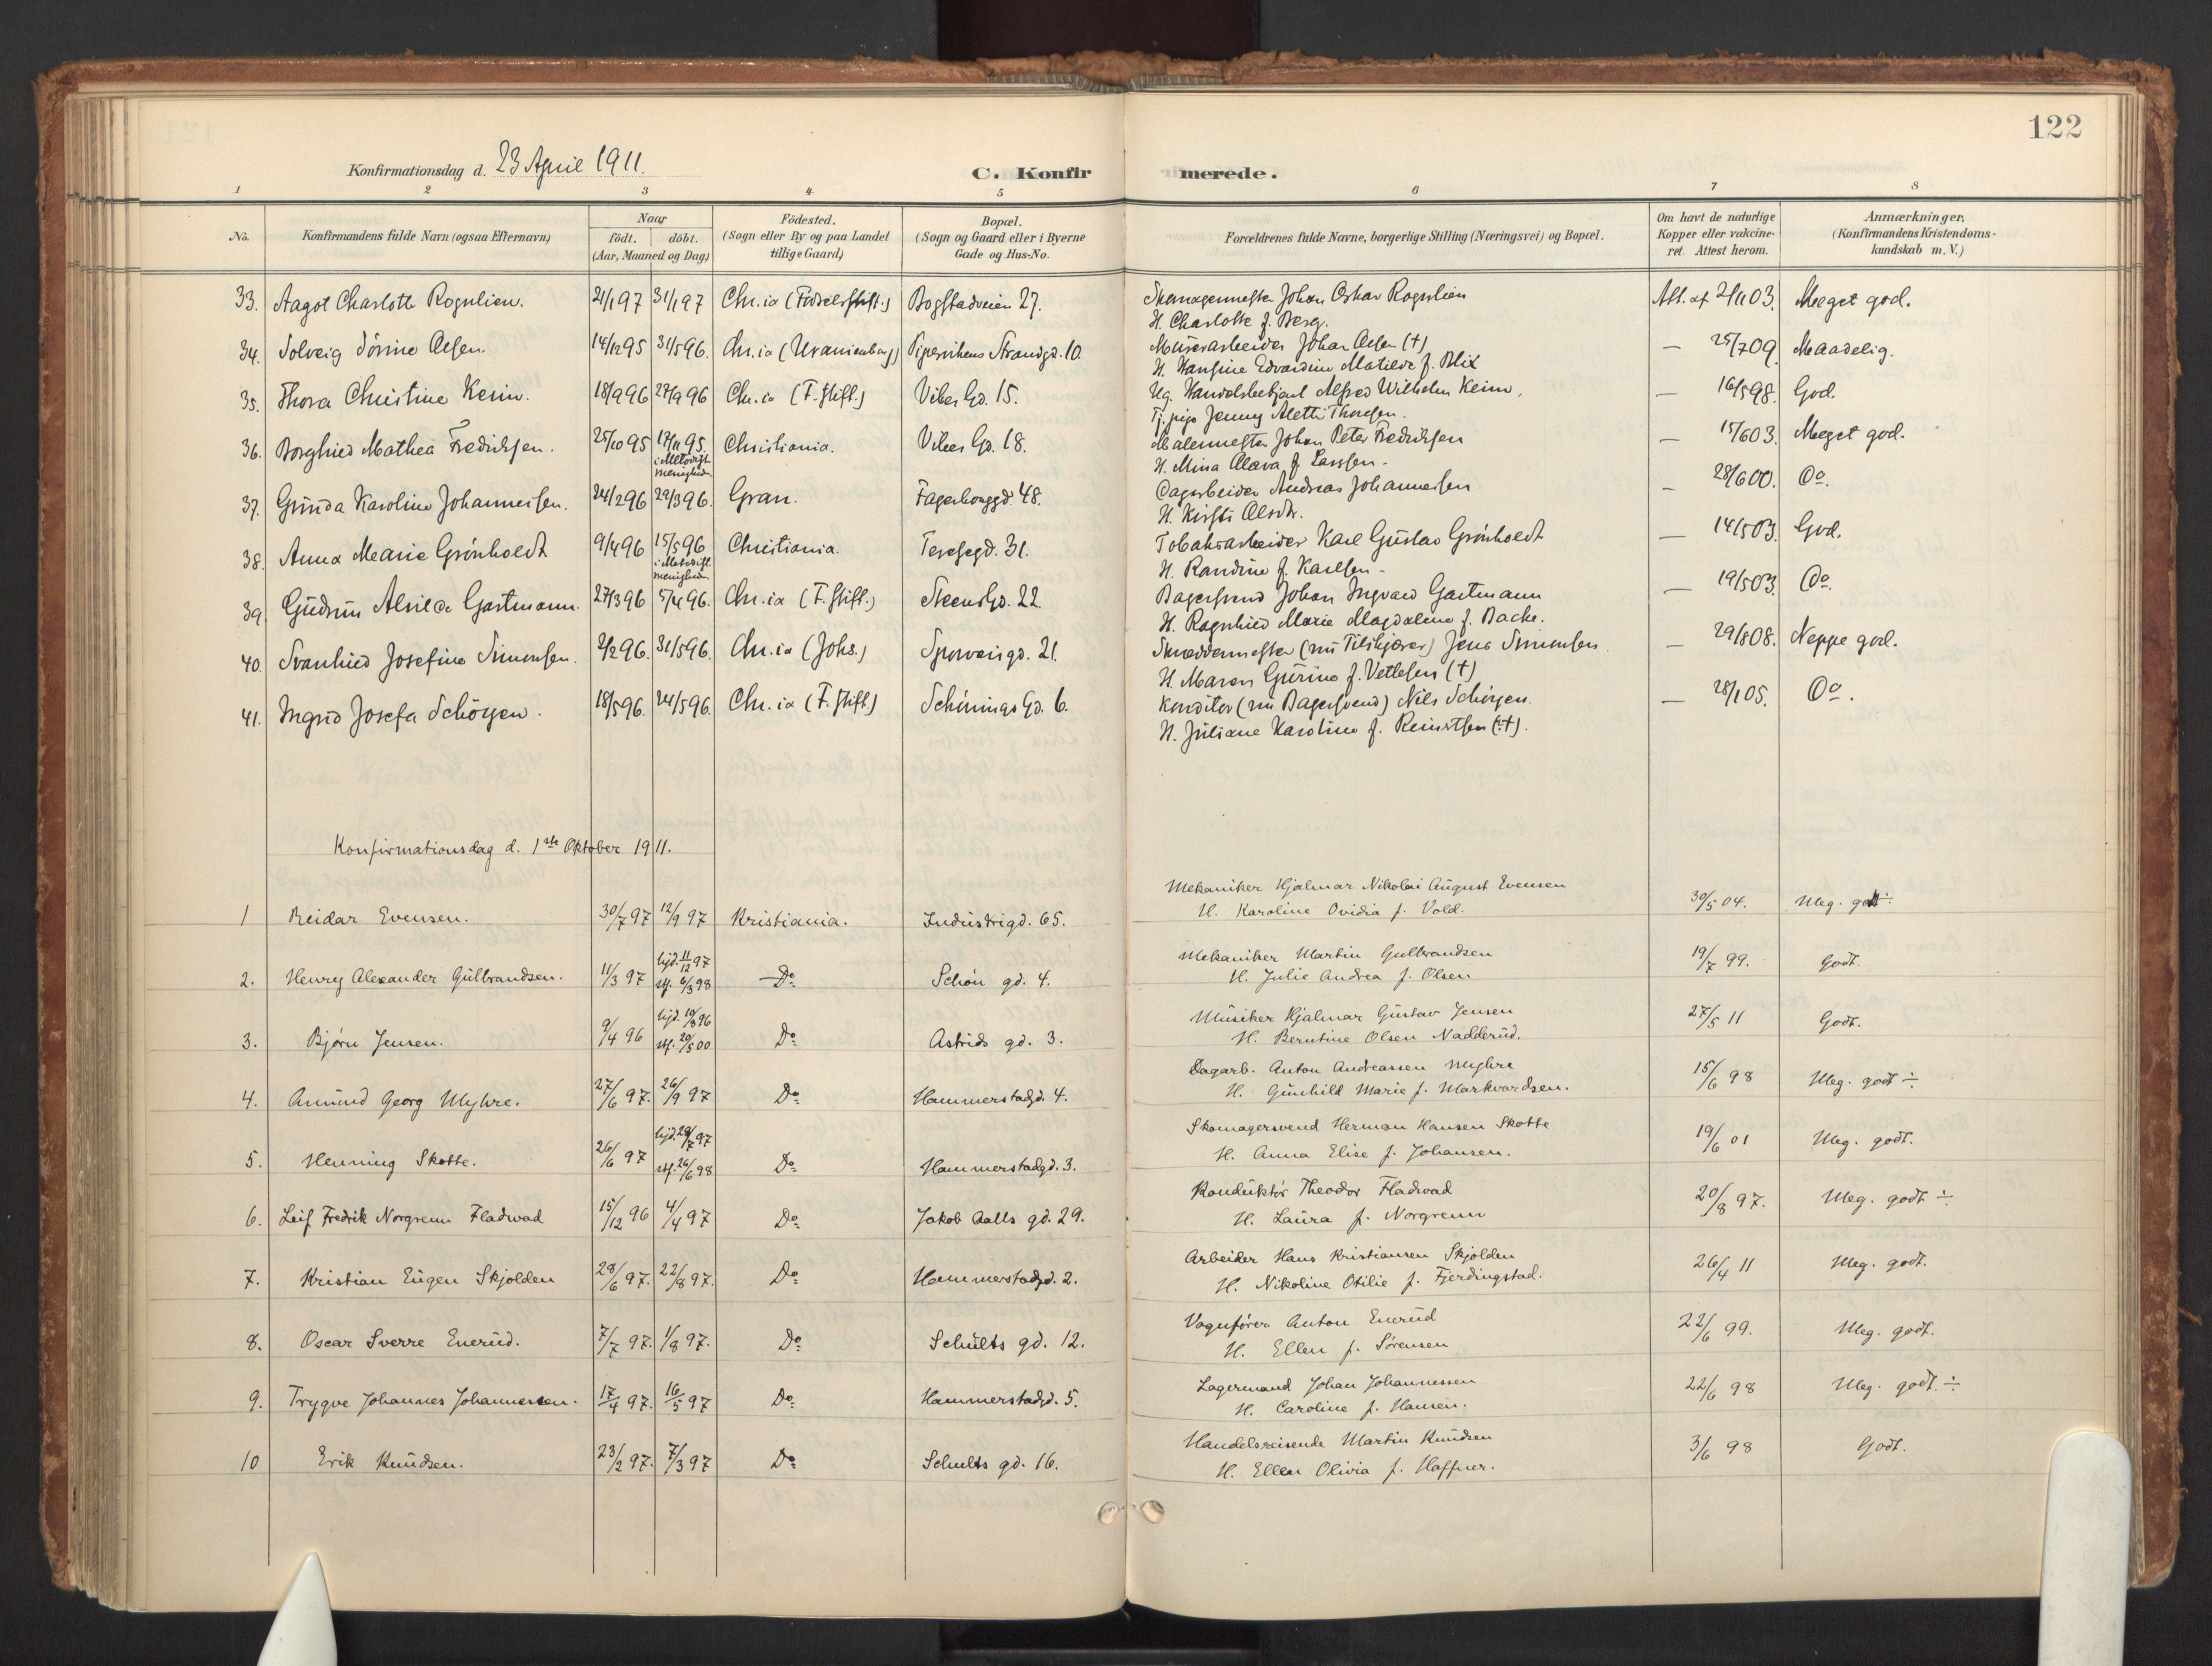 122
Konfirmationsdag d. 23 April 1911.
C. Konfirmerede.
1 2 3 4 5 6 7 8
No.
Konfirmandens fulde Navn (ogsaa Efternavn)
Naar
født. | døbt.
(Aar, Maaned og Dag)
Fødested.
(Sogn eller By og paa Landet
tillige Gaard)
Bopæl.
(Sogn og Gaard eller i Byerne
Gade og Hus-No.
Forældrenes fulde Navne, borgerlige Stilling (Næringsvei) og Bopæl.
Om havt de naturlige
Kopper eller vakcine-
ret. Attest herom.
Anmærkninger.
(Konfirmandens Kristendoms-
kundskab m. V.)
33. Aagot Charlotte Rognlien. 21/1 97 31/1 97 Chr.ia (Fødselsstift.) Bogstadveien 27. Skomagermester Johan Oskar Rognlien Att. af 2/11 03. Meget god.
H. Charlotte f. Berg.
34. Solveig Sørine Olsen. 14/12 95 31/5 96. Chr.ia (Uranienborg) Pipervikens Strandgd. 10. Murerarbeider Johan Olsen (†) — 25/7 09. Maadelig.
H. Hansine Edvardine Matilde f. Blix
35. Thora Christine Keim. 18/9 96 27/9 96 Chr.ia (F. stift.) Vibes Gd. 15. Ug. Handelsbetjent Alfred Wilhelm Keim, — 16/5 98. God.
Tj. pige Jenny Alette Thoresen.
36. Borghild Mathea Fredriksen. 25/10 95 17/11 95. Christiania. Vibes Gd. 18. Malermester Johan Peter Fredriksen — 15/6 03. Meget god.
i Metodist
menigheden
H. Mina Olava f. Larssen.
37. Gunda Karoline Johannessen. 24/2 96 29/3 96. Gran. Fagerborggd. 48. Dagarbeider Andreas Johannessen — 28/6 00. Do.
H. Kirsti Olsdtr.
38. Anna Marie Grönholdt 9/4 96 15/5 96 Christiania. Teresegd. 31. Tobaksarbeider Karl Gustav Grönholdt — 14/5 03. God.
i Metodist
menigheden
H. Randine f. Karlsen.
39. Gudrun Alvilde Gartmann. 27/3 96 5/4 96. Chr.ia (F. stift.) Steens Gd. 22. Bagersvend Johan Ingvard Gartmann — 19/5 03. Do.
H. Ragnhild Marie Magdalene f. Bache.
40. Svanhild Josefine Simensen. 2/2 96. 31/5 96. Chr.ia (Johs.) Sporveisgd. 21. Smeddemester (nu Tilskjærer) Jens Simensen — 29/8 08. Neppe god.
H. Maren Gurine f. Vetlesen (†)
41. Ingrid Josefa Schöyen. 18/5 96. 24/5 96. Chr.ia (F. stift.) Schönings Gd. 6. Konditor (nu Bagersvend) Nils Schöyen. — 28/1 05. Do.
H. Juliane Karoline f. Reinertsen (†).
Konfirmationsdag d. 1ste Oktober 1911.
1 Reidar Evensen. 30/7 97 12/9 97 Kristiania. Industrigd. 65. Mekaniker Hjalmar Nikolai August Evensen 30/5 04. Meg. godt ÷
H. Karoline Ovidia f. Vold.
2. Henry Alexander Gulbrandsen. 11/3 97 hjd. 11/12 97 stf. 6/3 98 Do. Schøn gd. 4. Mekaniker Martin Gulbrandsen 19/7 99. Godt.
H. Julie Andrea f. Olsen
3. Bjørn Jensen. 9/4 96 hjd. 10/8 96 stf. 20/5 00 Do. Astrids gd. 3. Musiker Hjalmar Gustav Jensen 27/5 11 Godt.
H. Berntine Olsen Nadderud.
4. Amund Georg Myhre. 27/6 97. 26/9 97 Do. Hammerstadgd. 4. Dagarb. Anton Andreassen Myhre 15/6 98 Meg. godt ÷
H. Gunhild Marie f. Markvardsen.
5. Henning Skotte. 26/6 97 hjd. 29/7 97 stf. 26/6 98 Do. Hammerstadgd. 3. Skomagersvend Herman Hansen Skotte 19/6 01 Meg. godt.
H. Anna Elise f. Johansen.
6. Leif Fredrik Norgrenn Fladvad 15/12 96 4/4 97 Do. Jakob Aalls gd. 29. Konduktør Theodor Fladvad 20/8 97. Meg. godt ÷
H. Laura f. Norgrenn
7. Kristian Eugen Skjolden 28/6 97. 22/8 97. Do. Hammerstadgd. 2. Arbeider Hans Kristiansen Skjolden 26/4 11 Meg. godt.
H. Nikoline Otilie f. Fjerdingstad.
8. Oscar Sverre Enerud. 7/7 97. 1/8 97. Do. Schults gd. 12. Vognfører Anton Enerud 22/6 99. Meg. godt.
H. Ellen f. Sørensen
9. Trygve Johannes Johannessen. 17/4 97. 16/5 97 Do. Hammerstadgd. 5. Lagermand Johan Johannessen 22/6 98 Meg. godt. ÷
H. Caroline f. Hansen.
10 Erik Knudsen. 23/2 97. 7/3 97 Do. Schults gd. 16. Handelsreisende Martin Knudsen 3/6 98 Godt.
H. Ellen Olivia f. Haffner.